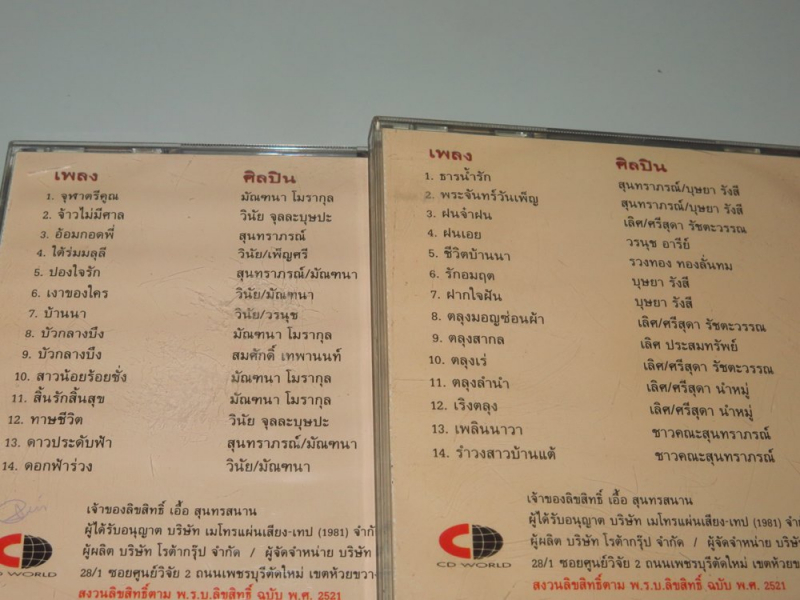 เพลง ศิลปิน
1. จุฬาตรีคูณ มัณฑนา โมรากุล
2. จ้าวไม่มีศาล วินัย จุลละบุษปะ
3. อ้อมกอดพี่ สุนทราภรณ์
4. ใต้ร่มมลุลี วินัย/เพ็ญศรี
5. ปองใจรัก สุนทราภรณ์/มัณฑนา
6. เงาของใคร วินัย/มัณฑนา
7. บ้านนา วินัย/วรนุช
8. บัวกลางบึง มัณฑนา โมรากุล
9. บัวกลางบึง สมศักดิ์ เทพานนท์
10. สาวน้อยร้อยชั่ง มัณฑนา โมรากุล
11. สิ้นรักสิ้นสุข มัณฑนา โมรากุล
12. ทาษชีวิต วินัย จุลละบุษปะ
13. ดาวประดับฟ้า สุนทราภรณ์/มัณฑนา
14. ดอกฟ้าร่วง วินัย/มัณฑนา
เจ้าของลิขสิทธิ์ เอื้อ สุนทรสนาน
ผู้ได้รับอนุญาต บริษัท เมโทรแผ่นเสียง-เทป (1981) จำกั
ผู้ผลิต บริษัท โรต้ากรุ๊ป จำกัด / ผู้จัดจำหน่าย บริษัท
28/1 ซอยศูนย์วิจัย 2 ถนนเพชรบุรีตัดใหม่ เขตห้วยขวา
สงวนลิขสิทธิ์ตาม พ.ร.บ.ลิขสิทธิ์ ฉบับ พ.ศ. 2521
CD WORLD
เพลง ศิลปิน
1. ธารน้ำรัก สุนทราภรณ์/บุษยา รังสี
2. พระจันทร์วันเพ็ญ สุนทราภรณ์/บุษยา รังสี
3. ฝนจำฝน เลิศ/ศรีสุดา รัชตะวรรณ
4. ฝนเอย วรนุช อารีย์
5. ชีวิตบ้านนา รวงทอง ทองลั่นทม
6. รักอมฤต บุษยา รังสี
7. ฝากใจฝัน บุษยา รังสี
8. ตลุงมอญซ่อนผ้า เลิศ/ศรีสุดา รัชตะวรรณ
9. ตลุงสากล เลิศ ประสมทรัพย์
10. ตลุงเร่ เลิศ/ศรีสุดา รัชตะวรรณ
11. ตลุงลำนำ เลิศ/ศรีสุดา นำหมู่
12. เริงตลุง เลิศ/ศรีสุดา นำหมู่
13. เพลินนาวา ชาวคณะสุนทราภรณ์
14. รำวงสาวบ้านแต้ ชาวคณะสุนทราภรณ์
เจ้าของลิขสิทธิ์ เอื้อ สุนทรสนาน
ผู้ได้รับอนุญาต บริษัท เมโทรแผ่นเสียง-เทป (1981) จำ
ผู้ผลิต บริษัท โรต้ากรุ๊ป จำกัด / ผู้จัดจำหน่าย บริษั
28/1 ซอยศูนย์วิจัย 2 ถนนเพชรบุรีตัดใหม่ เขตห้วย
สงวนลิขสิทธิ์ตาม พ.ร.บ.ลิขสิทธิ์ ฉบับ พ.ศ. 2521
CD WORLD